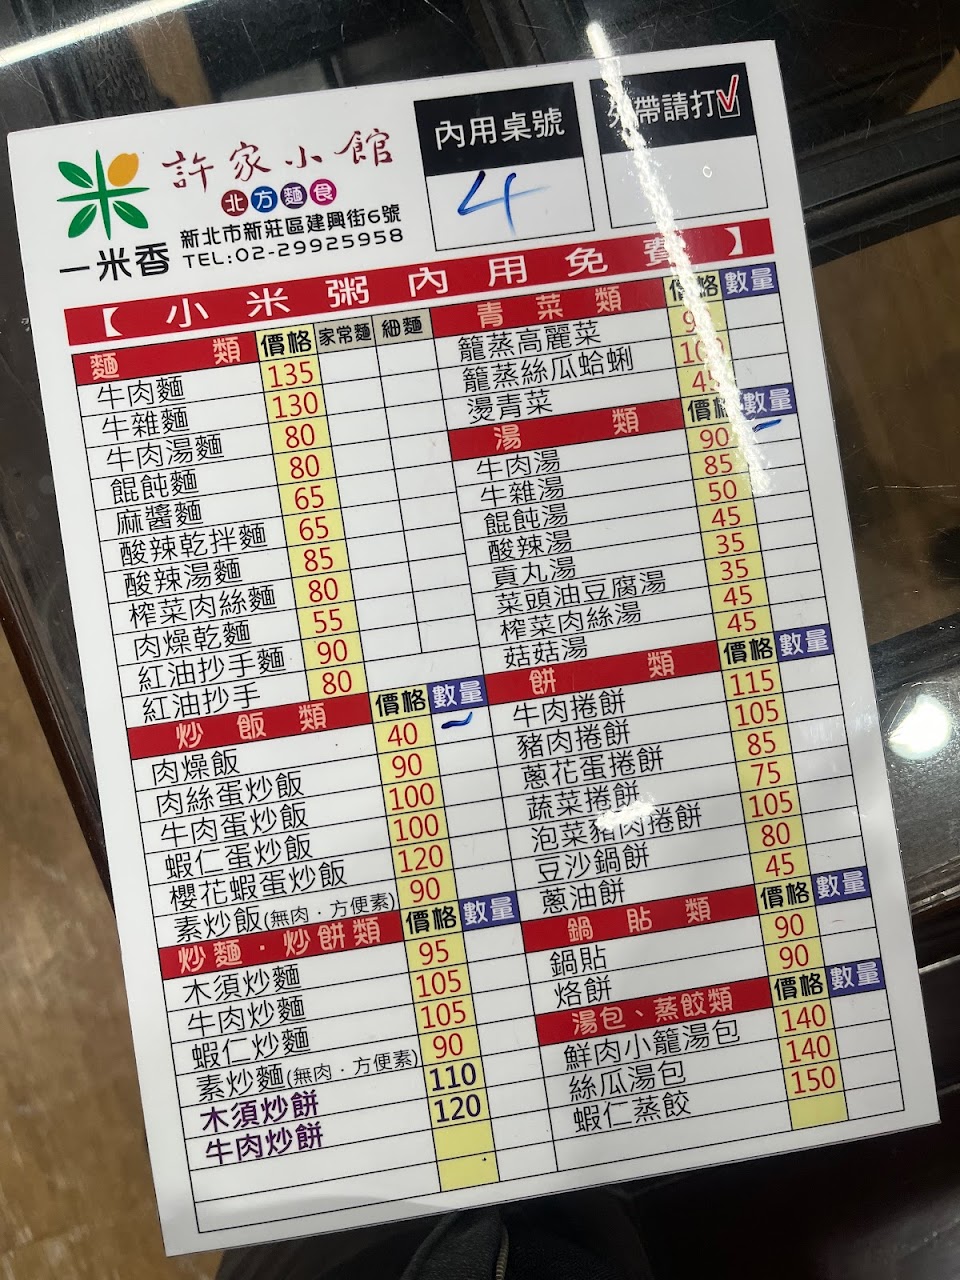 許家小館
北方麵食
一米香
新北市新莊區建興街6號
TEL:02-29925958
內用桌號
4
外帶請打☑
【小米粥內用免費】
麵類 價格 家常麵 細麵
牛肉麵 135
牛雜麵 130
牛肉湯麵 80
餛飩麵 80
麻醬麵 65
酸辣乾拌麵 65
酸辣湯麵 85
榨菜肉絲麵 80
肉燥乾麵 55
紅油抄手麵 90
紅油抄手 80
炒飯類 價格 數量
肉燥飯 40
肉絲蛋炒飯 90
牛肉蛋炒飯 100
蝦仁蛋炒飯 100
櫻花蝦蛋炒飯 120
素炒飯(無肉．方便素) 90
炒麵．炒餅類 價格 數量
木須炒麵 95
牛肉炒麵 105
蝦仁炒麵 105
素炒麵(無肉．方便素) 90
木須炒餅 110
牛肉炒餅 120
青菜類 價格 數量
籠蒸高麗菜
籠蒸絲瓜蛤蜊 100
燙青菜 45
湯類 價格 數量
牛肉湯 90
牛雜湯 85
餛飩湯 50
酸辣湯 45
貢丸湯 35
菜頭油豆腐湯 35
榨菜肉絲湯 45
菇菇湯 45
餅類 價格 數量
牛肉捲餅 115
豬肉捲餅 105
蔥花蛋捲餅 85
蔬菜捲餅 75
泡菜豬肉捲餅 105
豆沙鍋餅 80
蔥油餅 45
鍋貼類 價格 數量
鍋貼 90
烙餅 90
湯包、蒸餃類 價格 數量
鮮肉小籠湯包 140
絲瓜湯包 140
蝦仁蒸餃 150